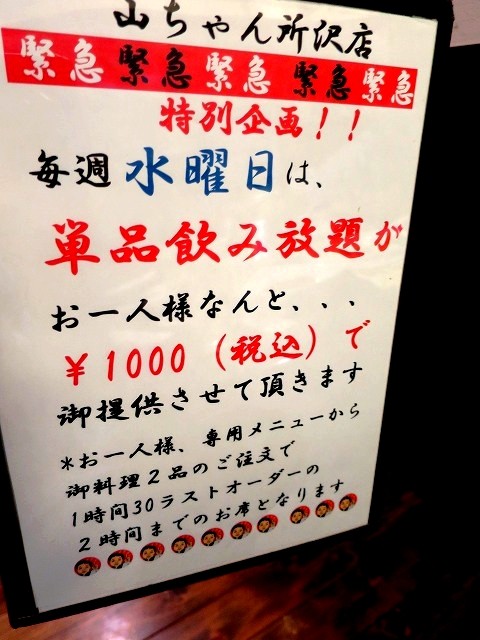 山ちゃん所沢店
緊急 緊急 緊急 緊急 緊急
特別企画！！
毎週 水曜日は、
単品飲み放題が
お一人様なんと、、、
¥1000（税込）で
御提供させて頂きます
*お一人様、専用メニューから
御料理2品のご注文で
1時間30ラストオーダーの
2時間までのお席となります